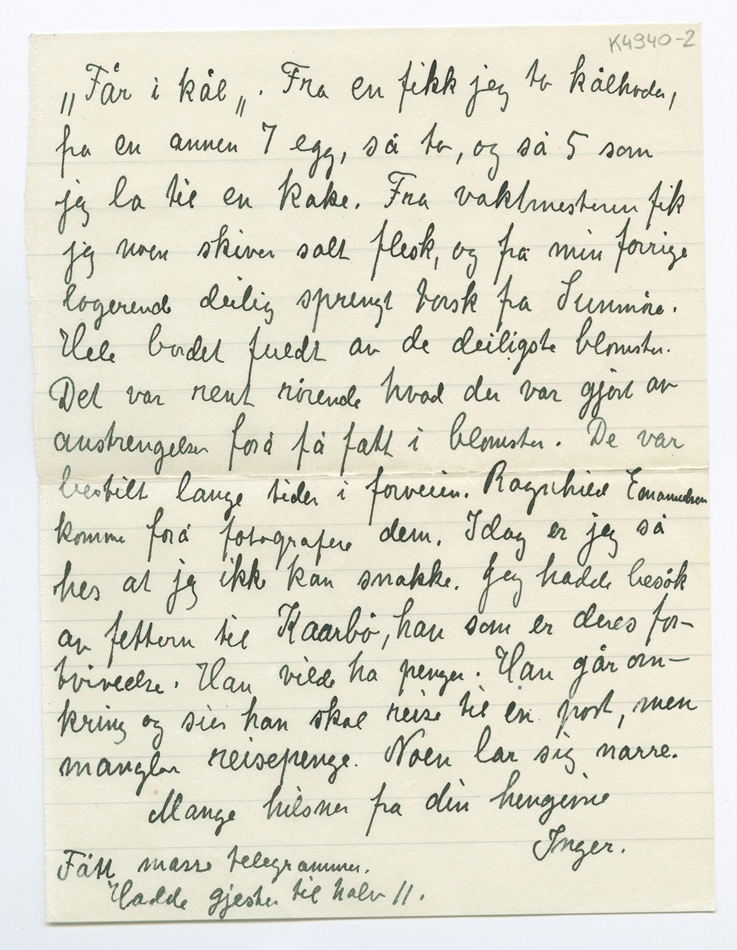 K4940-2
„Får i kål„. Fra en fikk jeg to kålhoder,
fra en annen 7 egg, så to, og så 5 som
jeg la til en kake. Fra vaktmesteren fik
jeg noen skiver salt flesk, og fra min forrige
logerende deilig sprengt torsk fra Sunmöre.
Hele bordet fuldt av de deiligste blomster.
Det var rent rörende hvad der var gjort av
anstrengelser forå få fatt i blomster. De var
bestilt lange tider i forveien. Ragnhild Emanuelsen
kommer forå fotografere dem. Idag er jeg så
hes at jeg ikke kan snakke. Jeg hadde besök
av fettern til Kaarbö, han som er deres for-
tvivelse. Han vilde ha penger. Han går om-
kring og sier han skal reise til en post, men
mangler reisepenge. Noen lar sig narre.
Mange hilsner fra din hengivne
Inger.
Fått masse telegrammer.
Hadde gjester til halv 11.